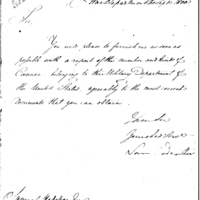 War Department
Sir,
You will please to furnish me as soon as
possible with a report of the number and kind of
Cannon belonging to the Military Department of
the United States, agreeably to the most recent
documents that you can obtain.
I am Sir
Your obed Serv
Sam